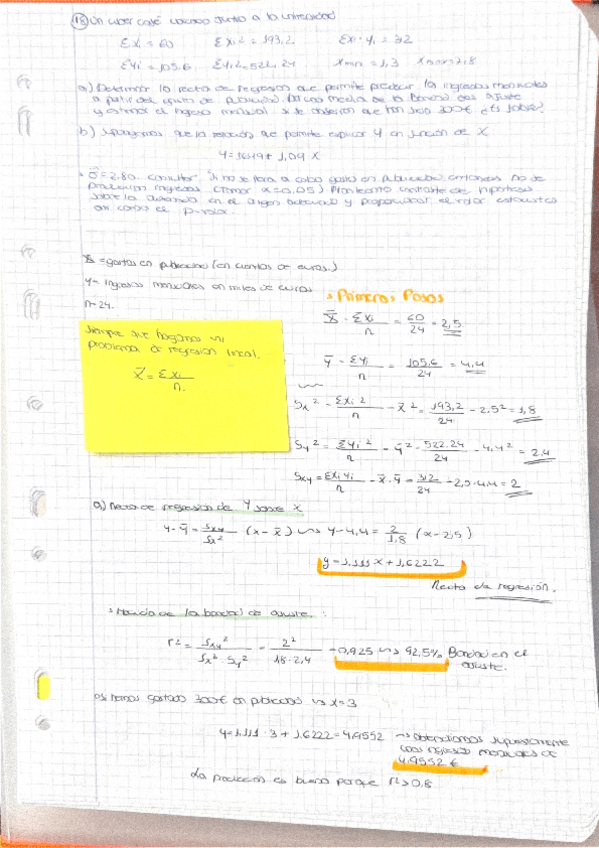 18 Un ciber café situado junto a la universidad
Σxi = 60   Σxi² = 193,2   Σxi·yi = 312
Σyi = 105,6   Σyi² = 522,24   xmin = 1,3   xmax = 7,8
a) Determinar la recta de regresión que permite predecir los ingresos mensuales
a partir del gasto de publicidad. Da una medida de la bondad del ajuste
y estimar el ingreso mensual si se observa que han sido 300€ ¿Es fiable?
b) Supongamos que la relación que permite explicar Y en función de X
Y = 1,6 + 1,09 X
Si no se lleva a cabo gastos en publicidad entonces no se
producirían ingresos (tomar α=0,05) Planteando contraste de hipótesis
sobre la ordenada en el origen adecuado y proporcionar el valor estadístico
así como el p-valor.
X = gastos en publicidad (en cientos de euros.)
Y = ingresos mensuales en miles de euros
n = 24.
→ Primeros Pasos
Siempre que hagamos un
problema de regresión lineal.
x̄ = Σxi / n.
x̄ = Σxi / n = 60 / 24 = 2,5
ȳ = Σyi / n = 105,6 / 24 = 4,4
Sx² = Σxi² / n - x̄² = 193,2 / 24 - 2,5² = 1,8
Sy² = Σyi² / n - ȳ² = 522,24 / 24 - 4,4² = 2,4
Sxy = Σxiyi / n - x̄·ȳ = 312 / 24 - 2,5·4,4 = 2
a) Recta de regresión de Y sobre X
y - ȳ = Sxy / Sx² (x - x̄) ↝ y - 4,4 = 2 / 1,8 (x - 2,5)
y = 1,111 x + 1,6222
Recta de regresión.
Medida de la bondad de ajuste :
r² = Sxy² / Sx²·Sy² = 2² / 1,8·2,4 = 0,925 ↝ 92,5% Bondad en el
ajuste.
Si hemos gastado 300€ en publicidad ↝ x = 3
y = 1,111 · 3 + 1,6222 = 4,9552 → Obtendríamos supuestamente
unos ingresos mensuales de
4.9552 €
La predicción es buena porque r² > 0,8